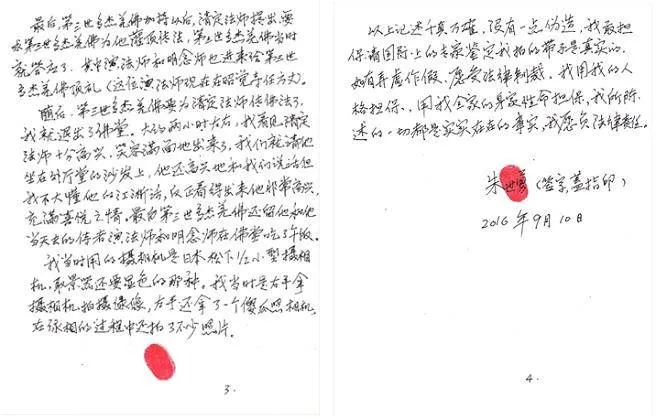 最后,第三世多杰羌佛加持以后,清定法师提出要
求第三世多杰羌佛为他灌顶传法,第三世多杰羌佛当时
就答应了。其中演法师和明念师也进来给第三世
多杰羌佛顶礼(这位演法师现在在昭觉寺任方丈)。
随后,第三世多杰羌佛要为清定法师传佛法了,
我就退出了佛堂。大约两小时左右,我看见清定
法师十分高兴,笑容满面地出来了,我们就请他
坐在外厅堂的沙发上,他还高兴地和我们说话但
我不大懂他的江浙话,反正看得出来他非常高兴,
充满喜悦之情。最后第三世多杰羌佛还留他和他
当天去的侍者演法师和明念师在佛堂吃了午饭。
我当时用的摄相机是日本松下1/2小型摄相
机,取景器还要显色的那种。我当时是右手拿
摄相机拍摄录像,左手还拿了一个傻瓜照相机,
在录相的过程中还拍了不少照片。
3.
以上记述千真万确,没有一点伪造,我敢担
保请国际上的专家鉴定我拍的带子是真实的,
如有弄虚作假,愿受法律制裁。我用我的人
格担保、用我全家的身家性命担保,我所陈
述的一切都是实实在在的事实,我愿负法律责任。
朱世(签字,盖指印)
2016年9月10日
4.